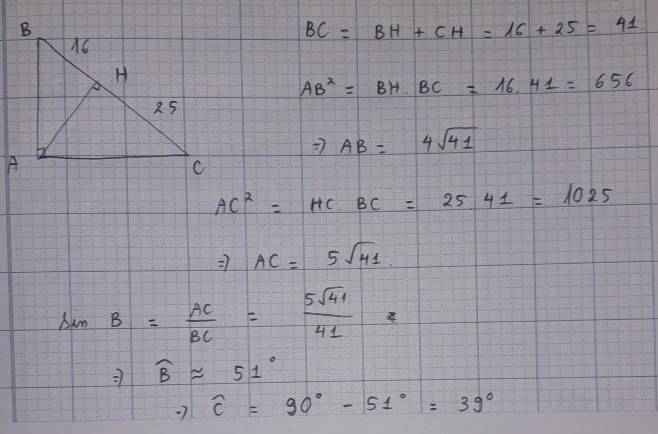 B
16
H
25
A
C
BC = BH + CH = 16 + 25 = 41
AB² = BH BC = 16.41 = 656
=) AB = 4√41
AC² = HC BC = 25 41 = 1025
=) AC = 5√41.
Sin B = AC/BC = 5√41/41
=) B̂ ≈ 51°
=) Ĉ = 90° - 51° = 39°